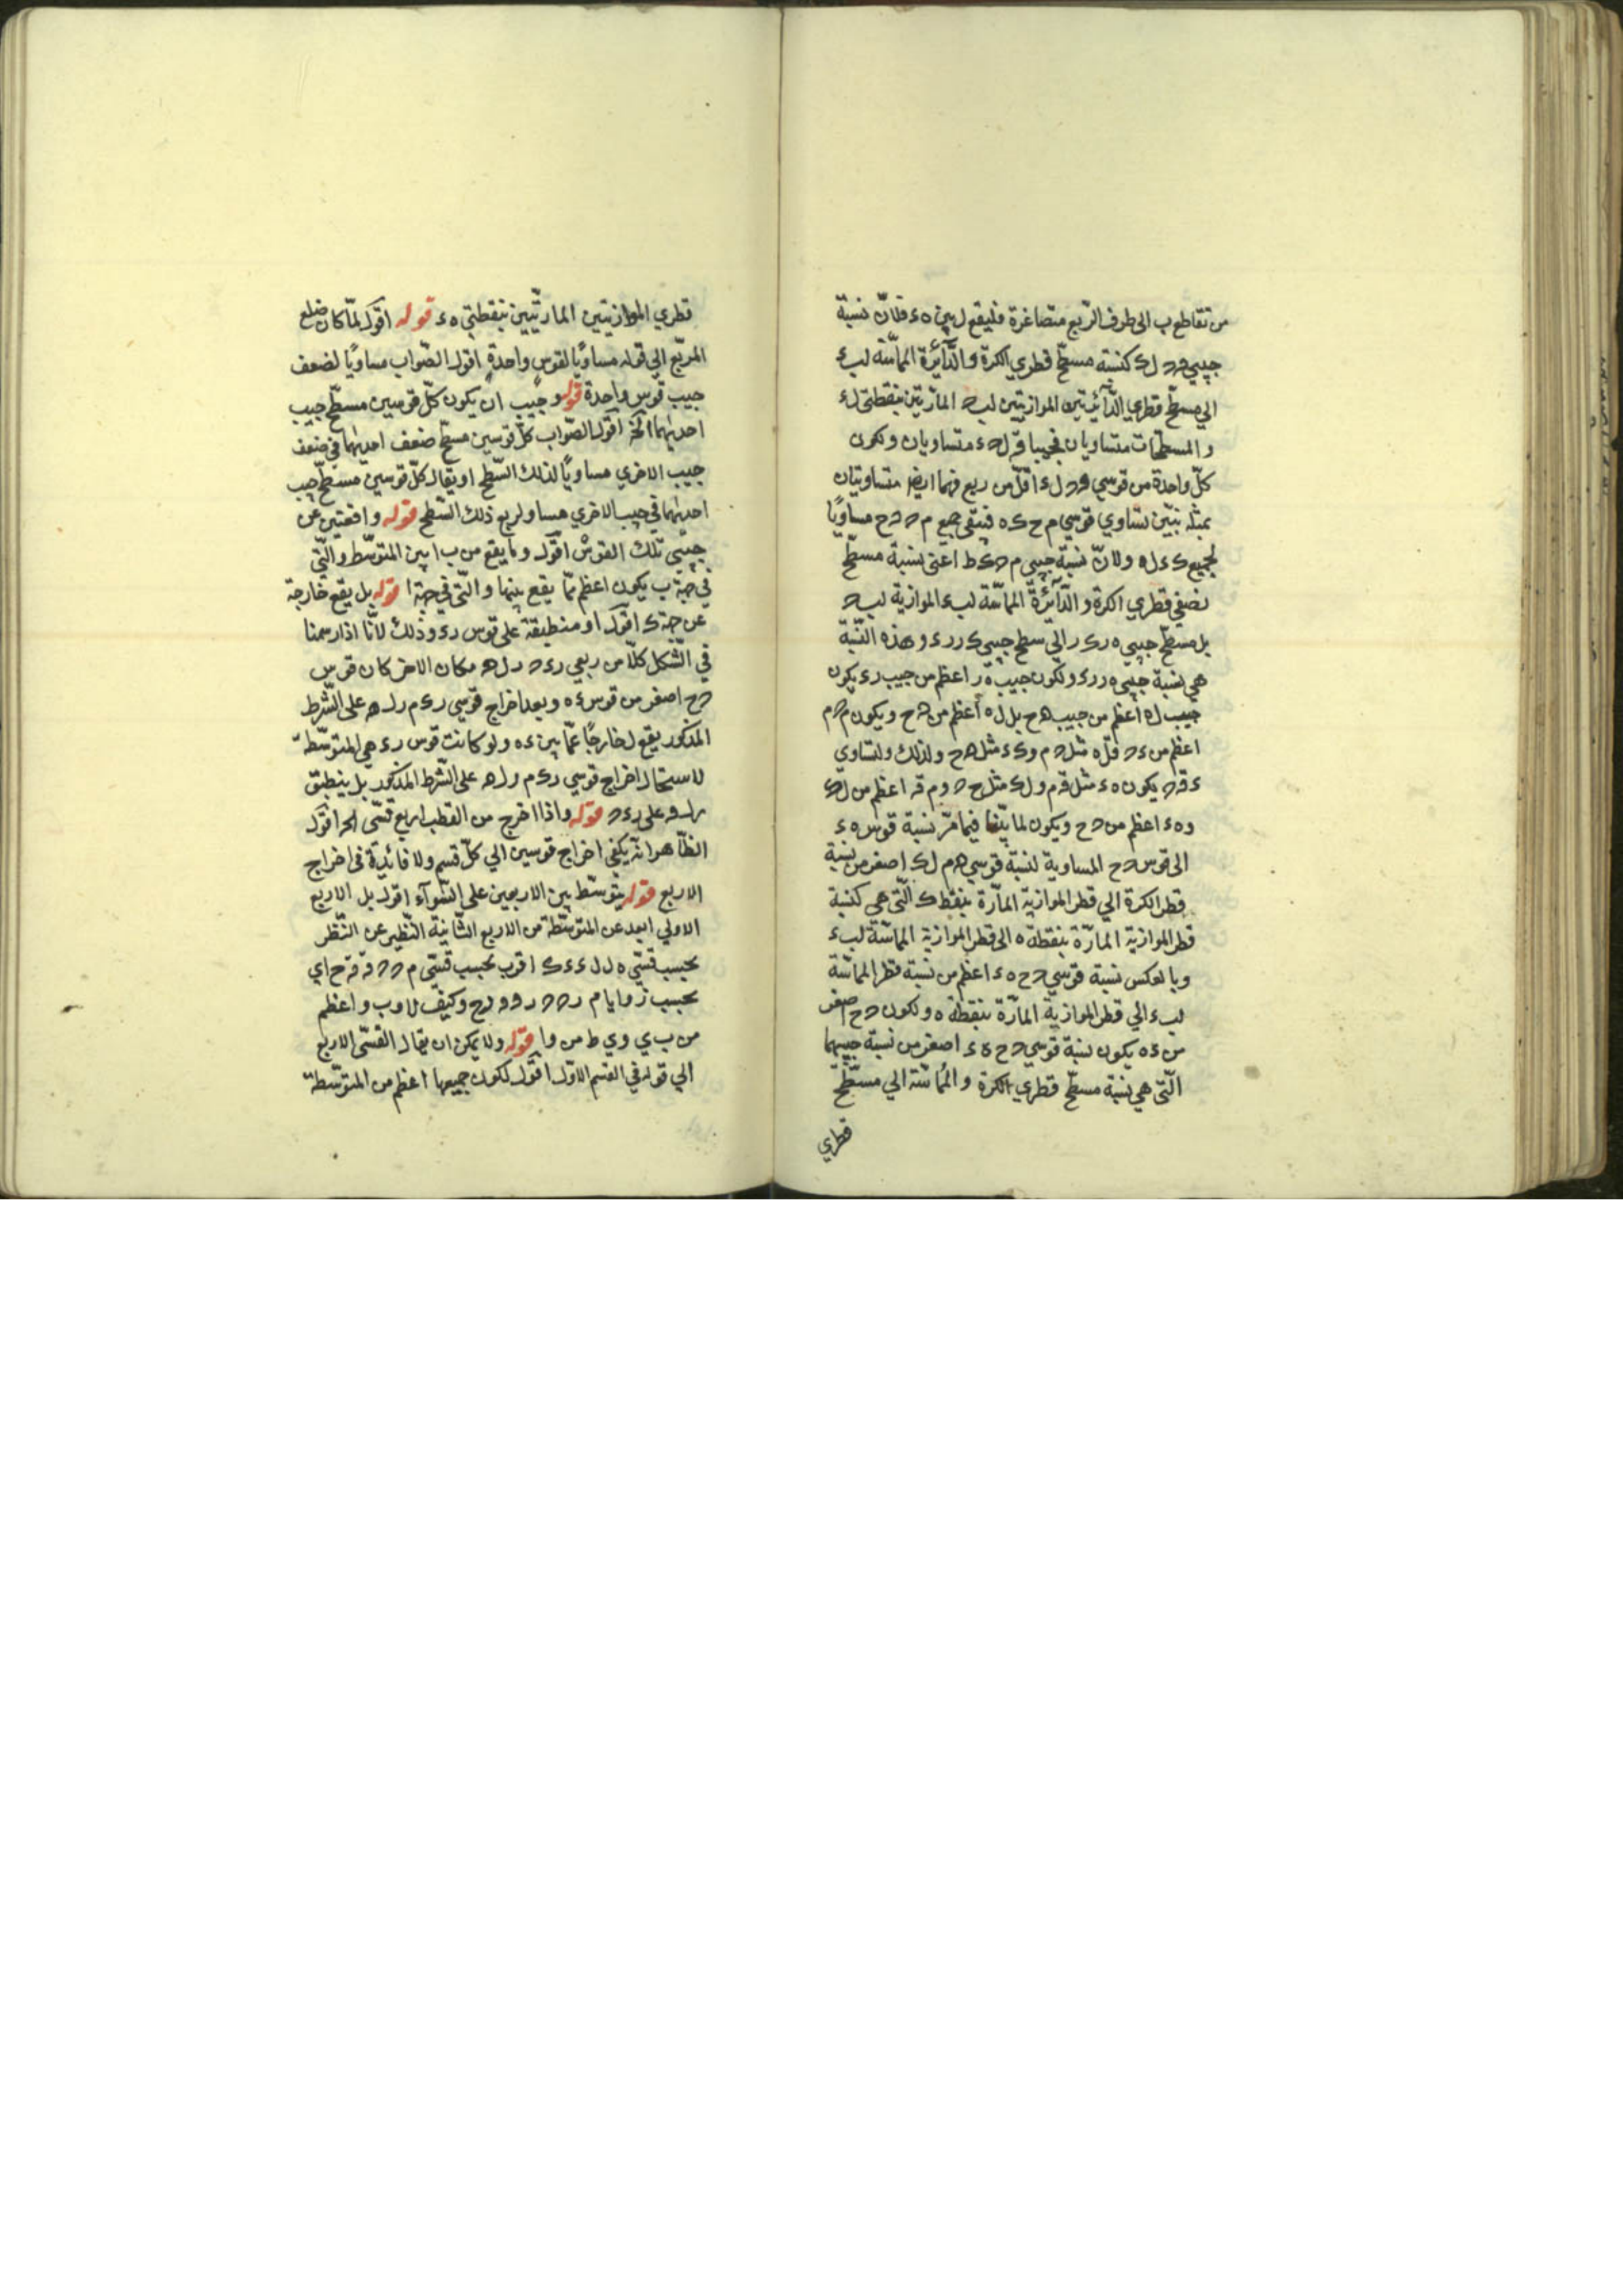 من تقاطع ب الى طرف الربع متصاغرة فليقع ل بين ه ء فلانّ نسبة
جيبي ل ك كنسبة مسطّح قطري الكرة والدّآئرة المماسّة لب ء
الي مسطّح قطري الدّآئرتين الموازيتين لب المارّتين بنقطتي ل ء
والمسطّحات متساويان فجيبا متساويان ولكون
كلّ واحدة من قوسي ل ء اقلّ من ربع فهما ايضا متساويتان
بمثله نبيّن تساوي قوسي م ح ك ه فيبقى جميع م ح مساويًا
لجميع ك ء ل ه ولانّ نسبة جيبي م ك ط اعني نسبة مسطّح
نصفي قطري الكرة والدّآئرة المماسّة لب ء الموازية لب
بل مسطّح جيبي ه ر ك ر الي سطح جيبي ك ر ر ء وهذه النّسبة
هي نسبة جيبي ه ر ر ء ولكون جيب ه ر اعظم من جيب ر ء يكون
جيب ل ه اعظم من جيب ه ح بل ل ه اعظم من ح ويكون م
اعظم من مثل م و ك ء مثل ه ح ولذلك ولتساوي
يكون ه ء مثل م و ل ك مثل ح و م اعظم من
و ه ء اعظم من ح ويكون لما بيّنّا فيما مرّ نسبة قوس ه ء
الى قوس ح المساوية لنسبة قوسي ه م ل ك اصغر من نسبة
قطر الكرة الي قطر الموازية المارّة بنقطة ك الّتي هي كنسبة
قطر الموازية المارّة بنقطة ه الى قطر الموازية المماسّة لب ء
وبالعكس نسبة قوسي ح ه ء اعظم من نسبة قطر المماسّة
لب ء الي قطر الموازية المارّة بنقطة ه ولكون ح اصغر
من ء ه يكون نسبة قوسي ح ه ء اصغر من نسبة جيبيهما
الّتي هي نسبة مسطّح قطري الكرة والمُماسّة الي مسطّح
قطري
قطري الموازيتين المارّتيين بنقطتي ه ء قوله اقول لمّا كان ضلع
المربّع الي قوله مساويًا لقوس واحدة اقول الصّواب مساويًا لضعف
جيب قوس واحدة قوله وجيب ان يكون كلّ قوسين مسطّح جيب
احديهما الخ اقول الصّواب كلّ قوسين مسطّح ضعف احديهما في ضعف
جيب الاخري مساويًا لذلك السّطح او يقال كلّ قوسين مسطّح جيب
احديهما في جيب الاخري مساو لربع ذلك السّطح قوله واقعتين عن
جنبتي تلك القوس اقول وما يقع من ب ا بين المتوسّط والّتي
في جهة ب يكون اعظم ممّا يقع بينها والّتي في جهة ا قوله بل يقع خارجة
عن جهة ك اقول او منطبقة على قوس ر ء وذلك لانّا اذا رسمنا
في الشّكل كلّا من ربعي ر ء ر ل ه مكان الاخر كان قوس
ح اصغر من قوس ء ه وبعد اخراج قوسي ر ء م ر ل ه على الشّرط
المذكور يقع ل خارجًا عمّا بين ء ه ولو كانت قوس ر ء هي المتوسّطة
لاستحال اخراج قوسي ر ك م ر ل ه على الشّرط المذكور بل ينطبق
ر ل ه على ر ء قوله واذا اخرج من القطب اربع قسّي الخ اقول
الظّاهر انّه يكفي اخراج قوسين الي كلّ قسم ولا فائدة في اخراج
الاربع قوله يتوسّط بين الاربعين على السّوآء اقول بل الاربع
الاولي ابعد عن المتوسّطة من الاربع الثّانية النّظير عن النّظر
بحسب قسّي ه ل ل ء ء ك اقرب بحسب قسّي م ح اي
بحسب زوايا م ر ر ح وكيف لا و ب و اعظم
من ب ي و ي ط من و ا قوله ولا يمكن ان يقال القسّي الاربع
الي قوله في القسم الاوّل اقول لكون جميعها اعظم من المتوسّطة